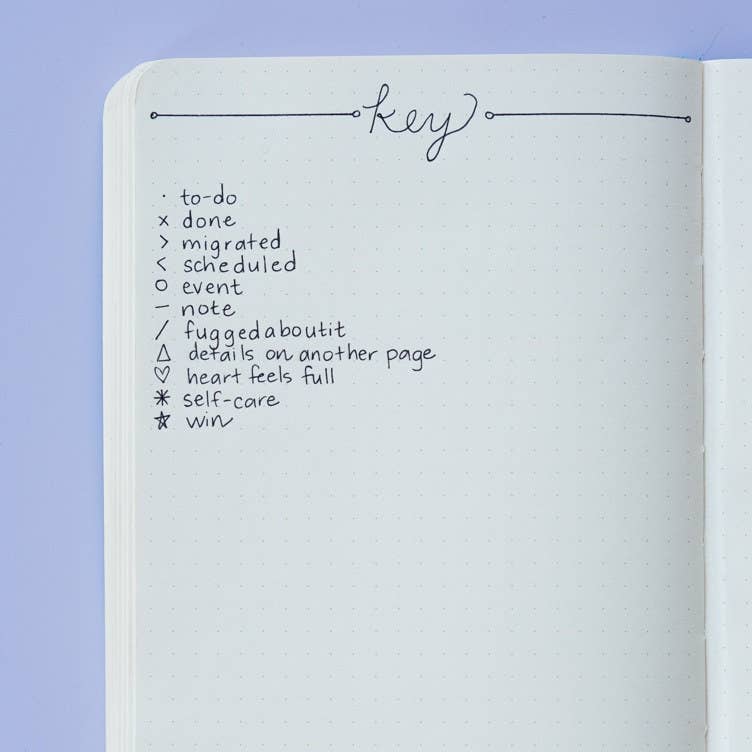 key
· to-do
× done
> migrated
< scheduled
○ event
— note
/ fuggedaboutit
△ details on another page
♡ heart feels full
✳ self-care
☆ win